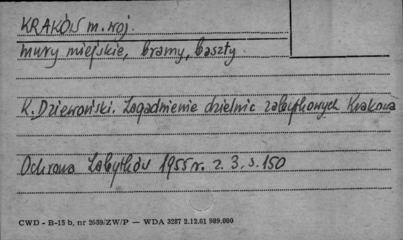 KRAKÓW m. woj.
mury miejskie, bramy, baszty.
K. Dziewoński. Zagadnienie dzielnic zabytkowych Krakowa
Ochrona Zabytków 1955 r. z. 3, s. 150
CWD - B-15 b, nr 2639/ZW/P — WDA 3287 2.12.61 989.000